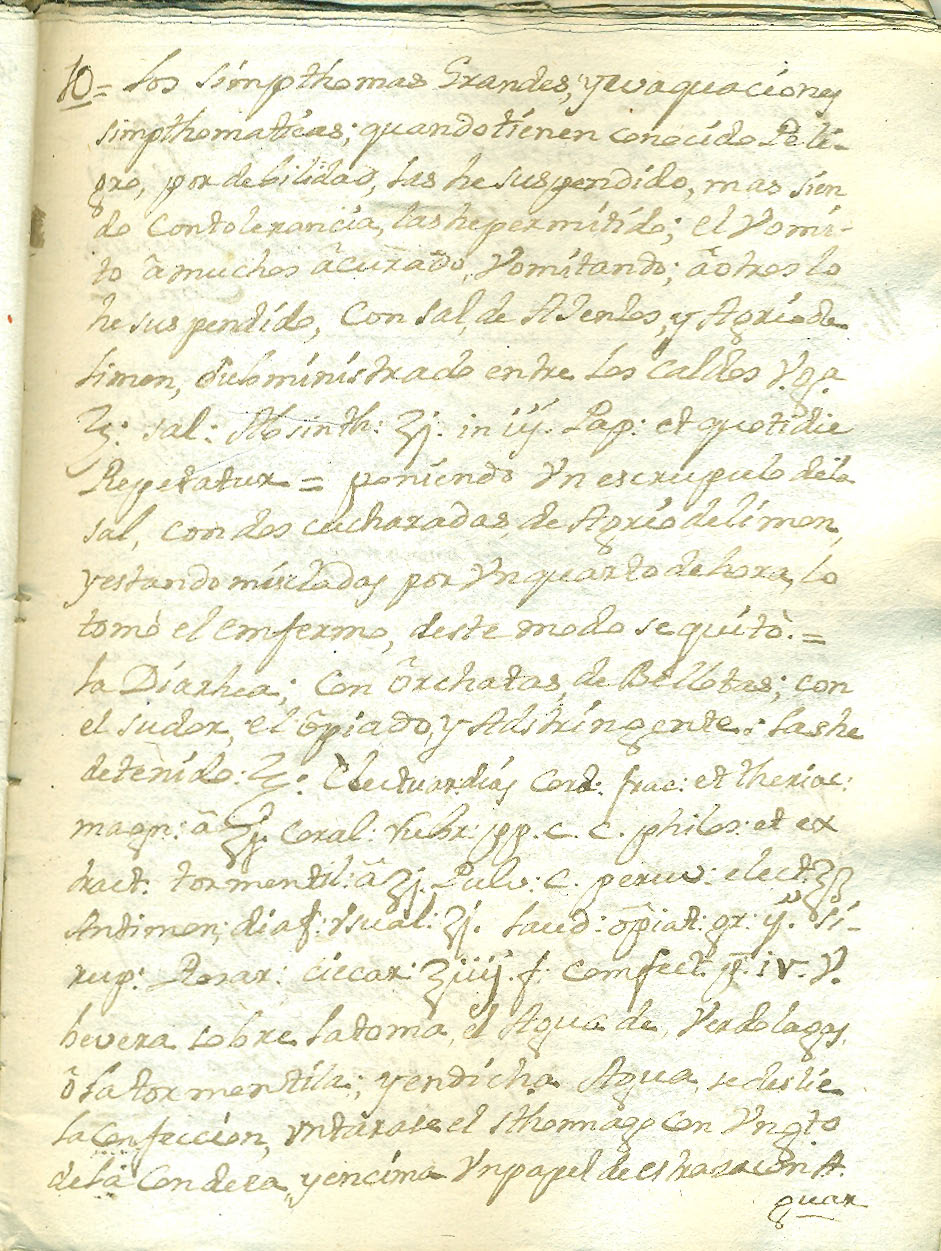 10= los simpthomas Grandes, y evaquaciones
simpthomaticas; quando tienen conocido Peli-
gro, por debilidad, las he suspendido, mas sien
do Con tolerancia, las he permitido; el Vomi-
to â muchos â curado, Vomitando; â otros lo
he suspendido, Con sal, de Ajenjos, y Agrio de
limon, subministrado entre los Caldos V.g.
sal: Absinth: ʒj. in iij. Pap: et quotidie
Repetatur = poniendo Vn escrupulo dela
sal, con dos cucharadas, de Agrio de limon,
y estando mixladas por Vn quarto de hora, lo
tomò el enfermo, deste modo se quitò. =
la Diarhea; Con ôrchatas, de Bellotas; con
el sudor, el ôpiado, y Adstringente: las he
detenido: Electuar: dias Cord: frac: et theriac:
magn: â ʒj. Coral: rubr: pp. c. c. philos: et ex
tract: tormentil: â ʒj. Pulv: c. peruv: elect: ʒβ
Antimon: diaf: Vsual: ʒj. laud: ôpiat: gr: ij. Si-
rup: Rosar: ciccar: ʒiiij. f: comfect. iv. V.
bevera sobre la toma, el Agua de, Verdolagas,
ô la tormentila; y en dicha Agua, se deslie
la Confeccion, vntarase el sthomago con Vngto
dela Condesa, y encima Vn papel de estrasa con A.
guar